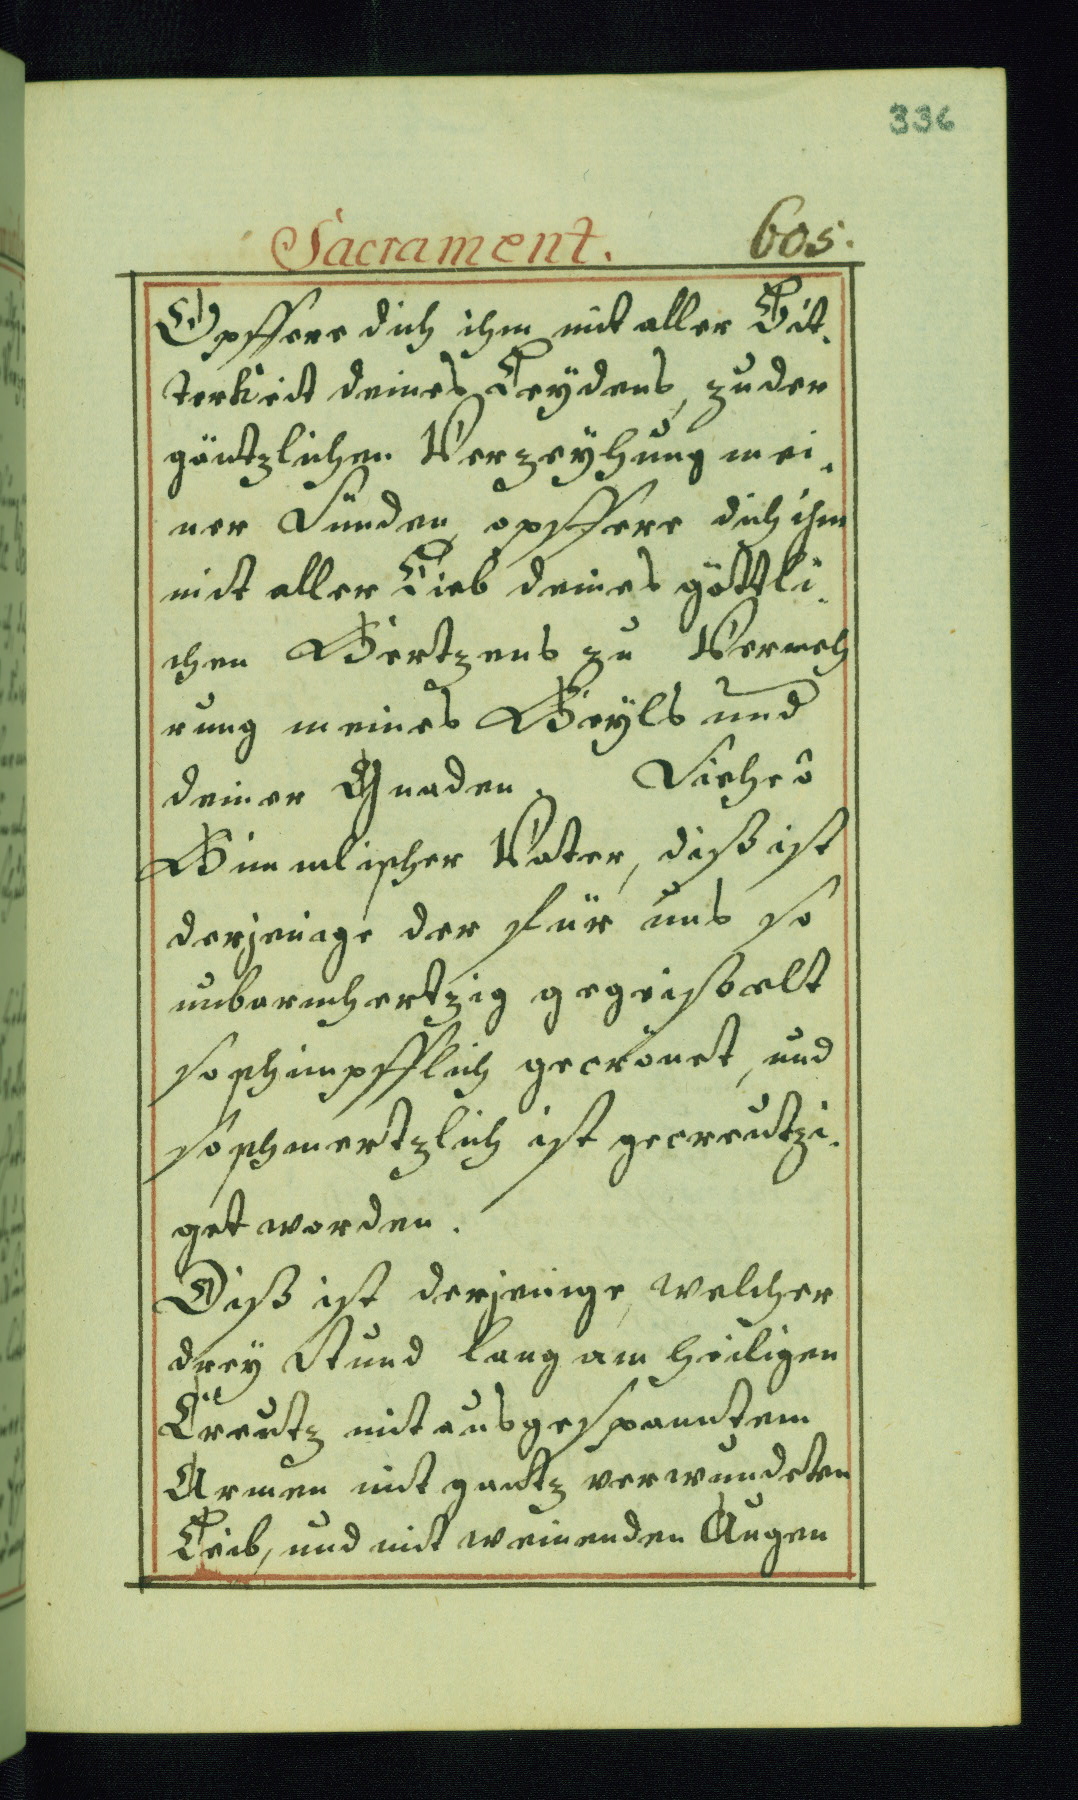 336
Sacrament. 605.
Opffere dich ihm mit aller Bit-
terkeit deines Leydens, zu der
gäntzlichen Verzeÿhung mei-
ner Sünden, opffere dich ihm
mit aller Lieb deines göttli-
chen Hertzens zu Vermeh
rung meines Heÿls und
deiner Gnaden. Siehe ô
Himmlischer Vater, diß ist
derjenige der für uns so
unbarmhertzig gegeißelt
so schimpfflich gecrönet, und
so schmertzlich ist gecreutzi-
get worden.
Diß ist derjenige, welcher
dreÿ Stund lang am heiligen
Creutz mit ausgespanntem
Armen mit gantz verwundeten
Leib, und mit weinenden Augen